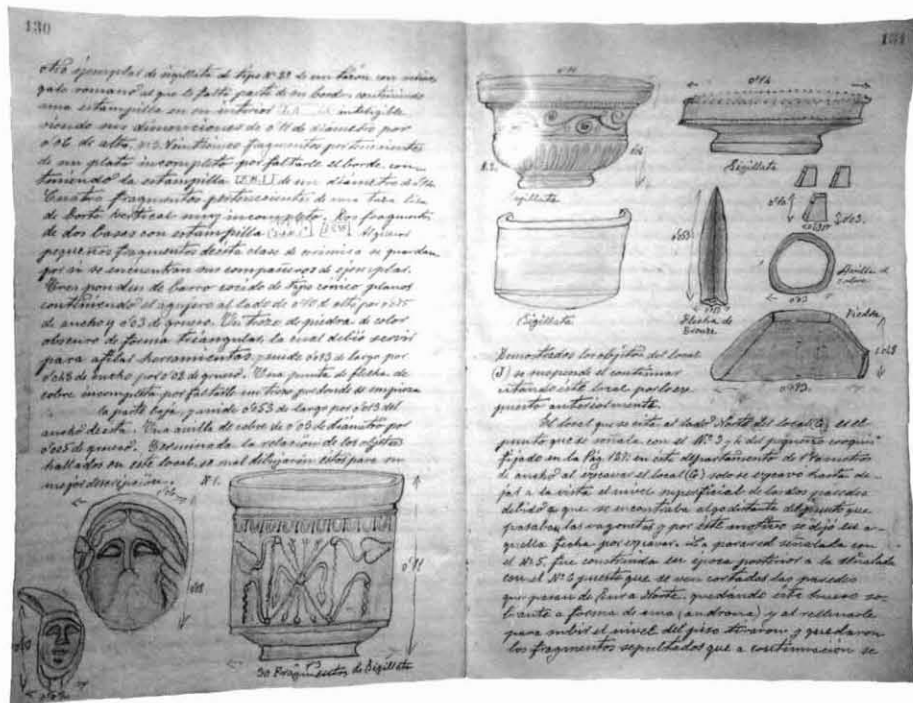 130
otro ejemplar de sigillata de tipo Nº 29 de un tazón con
gate romano al que le falta parte de su borde, conteniendo
una estampilla en su interior inteligible
siendo sus dimensiones de 0'11 de diámetro por
0'06 de alto, nº3. Veintiunos fragmentos pertenecientes
de un plato incompleto por faltarle el borde, con
teniendo la estampilla de un diámetro de
Cuatro fragmentos pertenecientes de una taza lisa
de borde vertical muy incompleto. Dos fragmentos
de dos bases con estampilla Algunos
pequeños fragmentos de esta clase de cerámica se guardan
por si se encuentran sus compañeros de ejemplar.
Tres pondus de barro cocido de tipo cónico planos
conteniendo el agujero al lado de 0'10 de alto por
de ancho y 0'03 de grueso. Un trozo de piedra de color
obscuro de forma triangular, la cual debió servir
para afilar herramientas, y mide 0'093 de largo por
0'048 de ancho por 0'02 de grueso. Una punta de flecha de
cobre incompleta por faltarle un trozo por donde se empieza
la parte baja, y mide 0'053 de largo por 0'013 del
ancho de esta. Una anilla de cobre de 0'03 de diametro por
0'005 de grueso. Terminada la relación de los objetos
hallados en este local, se mal dibujarán estos para su
mejor descripción.
Nº 1.
0'11
30 Fragmentos de Sigillata
131
0'11
0'14
N. 2.
Sigillata
Sigillata
Sigillata
0'10
0'053
Flecha de
Bronze
Anilla de
cobre
0'03
Piedra
0'048
0'093
Demostrados los objetos del local
(J) se suspende el continuar
citando este local por lo ex
puesto anteriormente.
El local que se cita al lado Norte del local (G) es el
punto que se señala con el Nº 3 y 4 del pequeño croquis
fijado en la Pág. 127. en este departamento de metros
de ancho al excavar el local (G) solo se excavó hasta de-
jar a la vista el nivel superficial de las dos paredes
debido a que se encontraba algo distante del punto que
pasaban las vagonetas y por este motivo se dejó en a-
quella fecha por excavar. La pared señalada con
el Nº 5, fue construida en época posterior a la señalada
con el Nº 6 puesto que se ven cortadas las paredes
que pasan de Cara Norte, quedando este hueco so-
brante a forma de una (androna) y al rellenarlo
para subir el nivel del piso tiraron y quedaron
los fragmentos sepultados que a continuación se